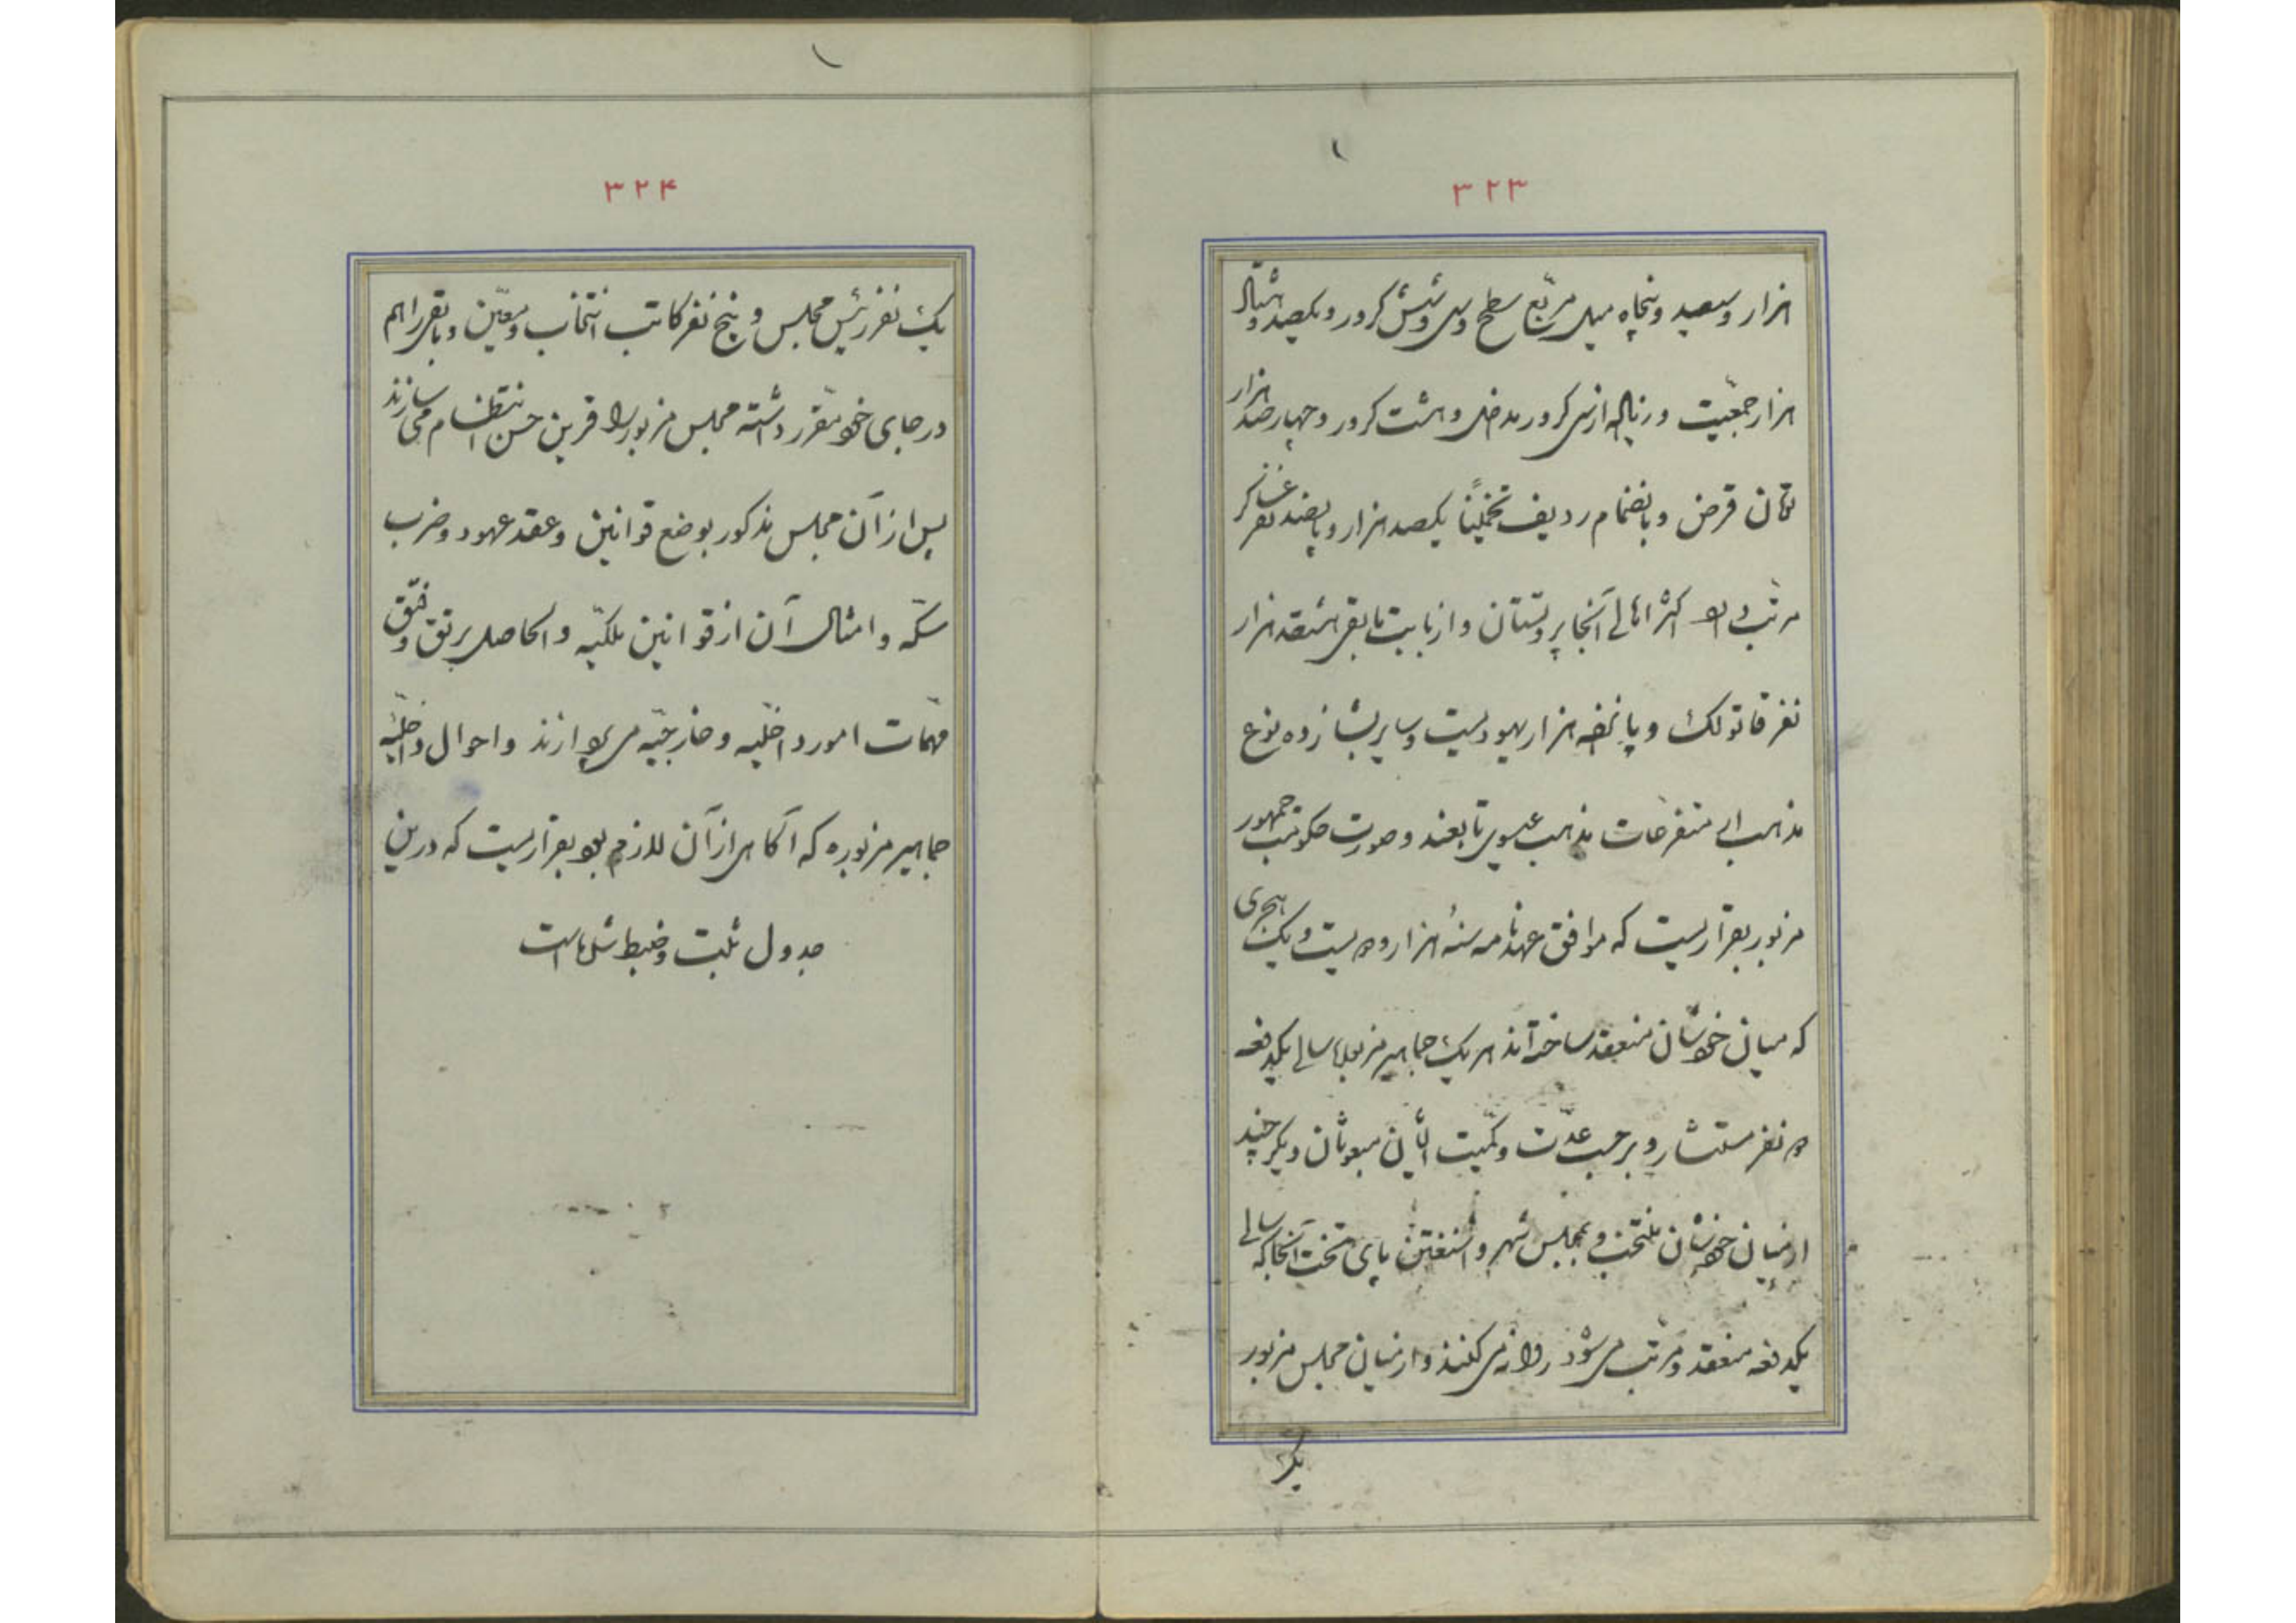 ۳۲۳
هزار و سیصد و پنجاه میل مربّع سطح و سی و شش کرور و یکصد و شتاله
هزار جمعیّت و زیاله از سی کرور مدخل و هشت کرور و چهار صد هزار
تمان قرض و بانضمام ردیف تخمیناً یکصد هزار و پانصد نفر عساکر
مرتّب دارد اکثر اهالی آنجا پروتستان و از بابت مابقی هشتصد هزار
نفر قاتولک و پانصد هزار یهودیست و سایرین بشانزده نوع
مذاهب از متفرعات مذهب عیسوی تابعند و صورت حکومت جمهور
مزبور بقراریست که موافق عهدنامه سنهٔ هزار و دویست و یک هجری
که میان خودشان منعقد ساخته‌اند هر یک جماهیر مزبوره سالی یکدفعه
دو نفر مستشار و برحسب عدّت و کمّیت اهالیشان مبعوثان دیگر چند
از میان خودشان منتخب و بمجلس شهر واشنغتن پای تخت آنجا که سالی
یکدفعه منعقد و مرتّب می‌شود روانه می‌کنند و از میان مجلس مزبور
یک
۳۲۴
یک نفر رئیس مجلس و پنج نفر کاتب انتخاب و معیّن و باقی را هم
در جای خود مقرّر داشته مجلس مزبور را قرین حسن انتظام می سازند
پس از آن مجلس مذکور بوضع قوانین و عقد عهود و ضرب
سکّه و امثال آن از قوانین ملکیّه و الحاصل برتق و فتق
مهمّات امور داخلیّه و خارجیّه می پردازند و احوال داخلیّهٔ
جماهیر مزبوره که آگاهی از آن لازم بود بقراریست که درین
جدول ثبت و ضبط شده است